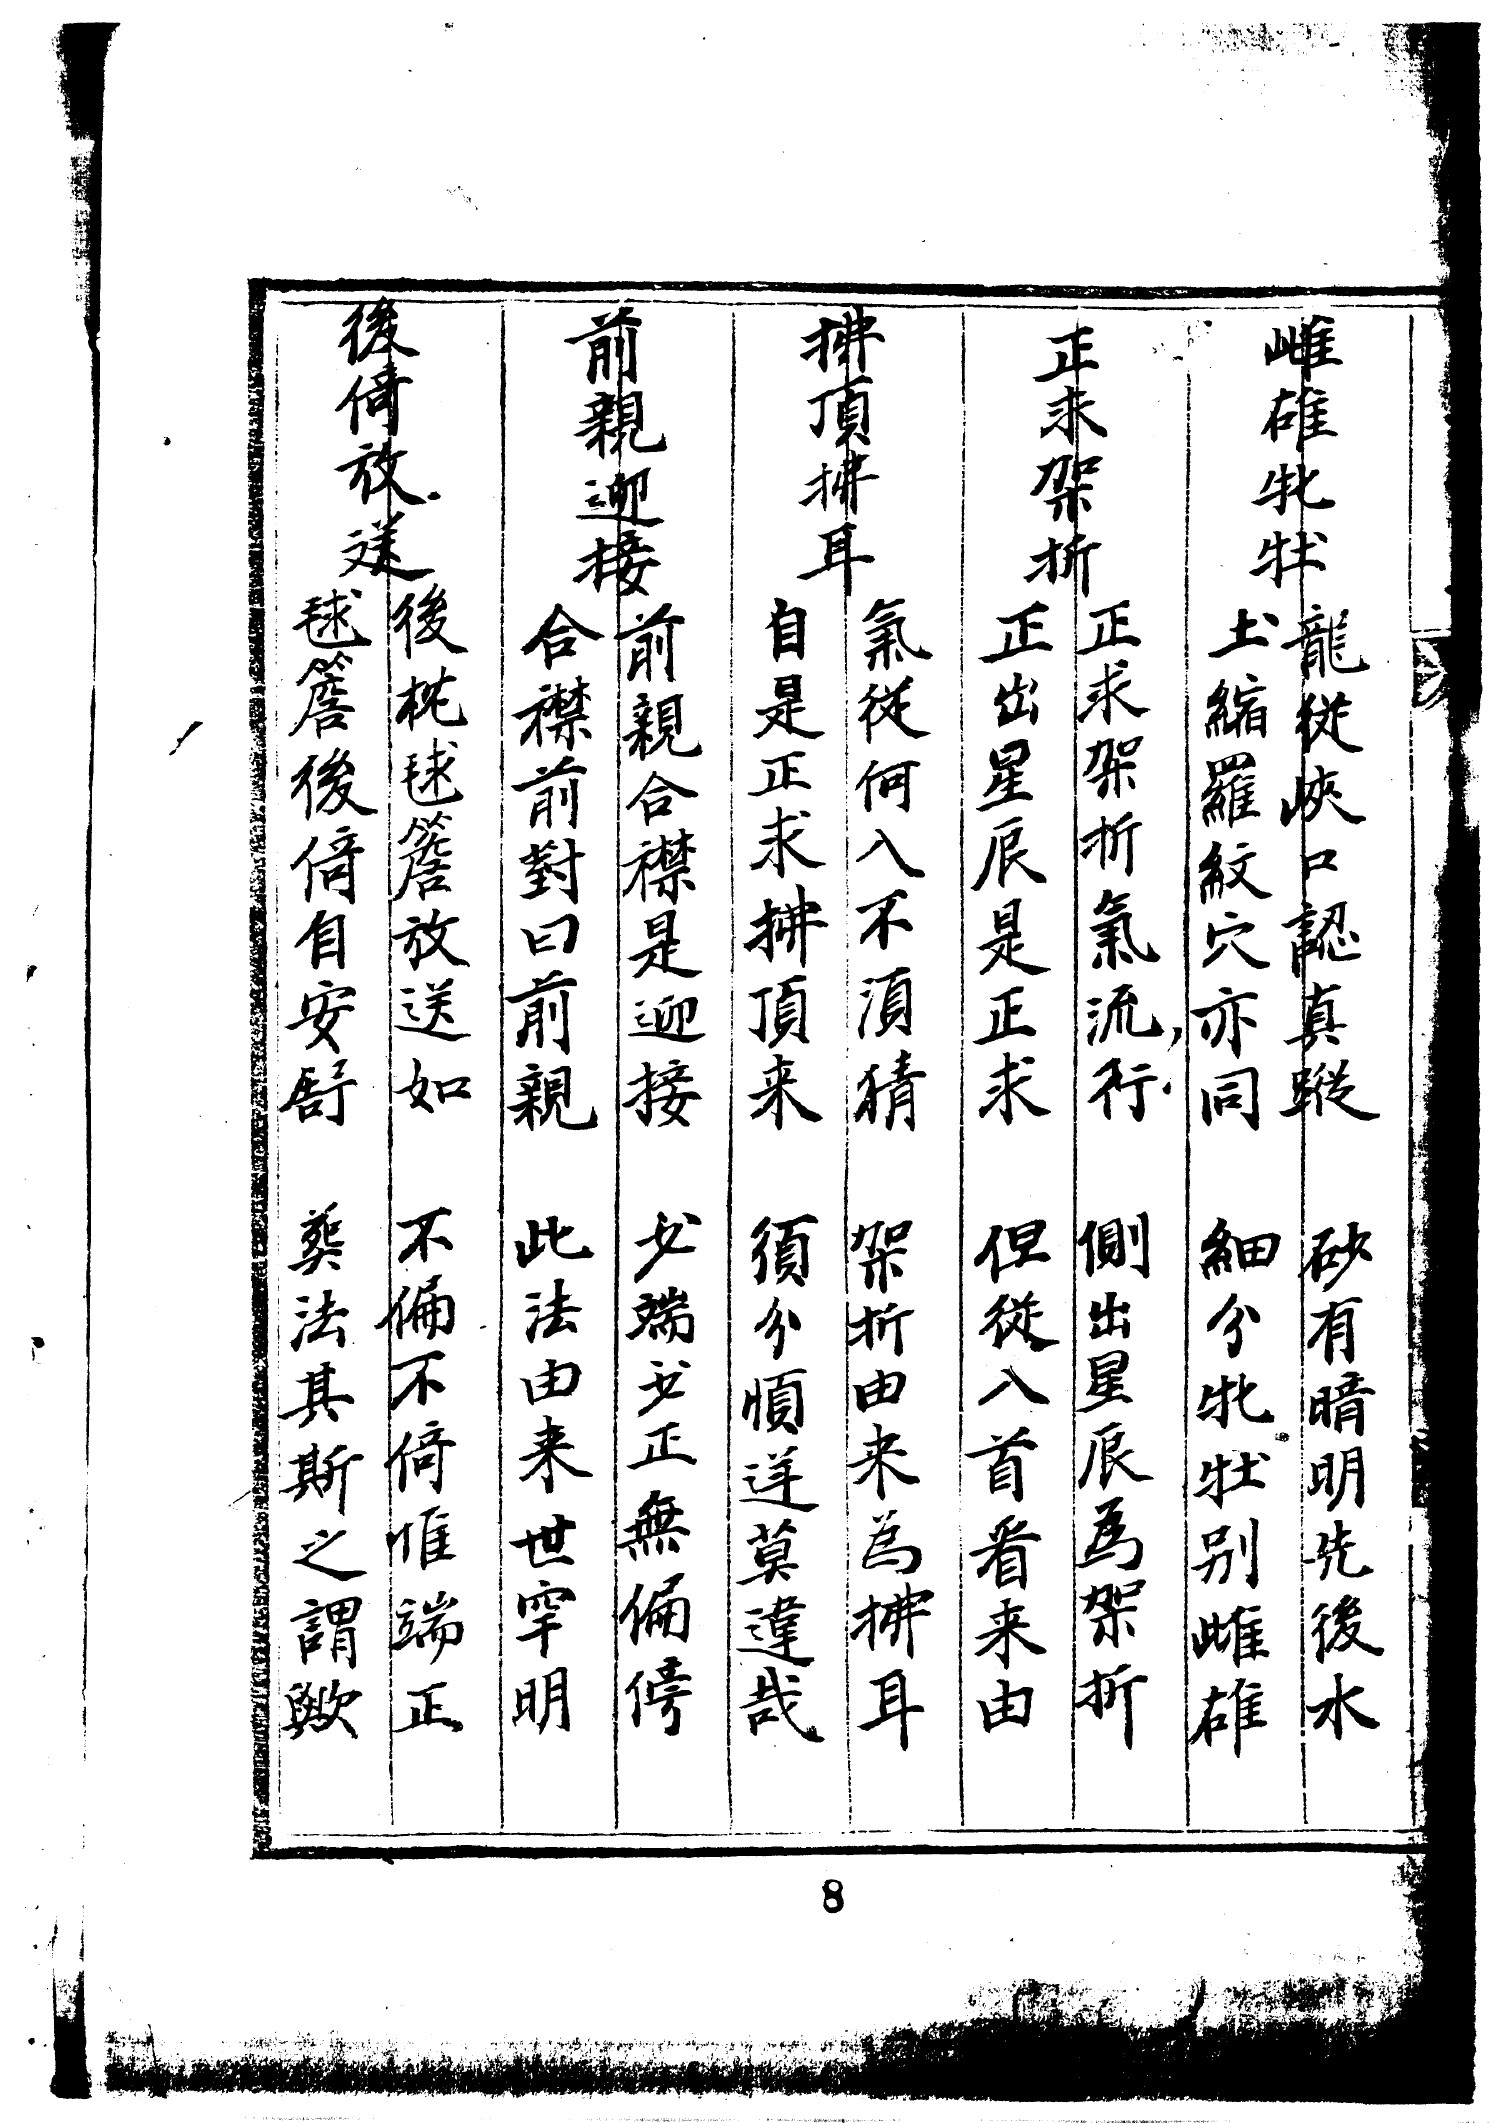 雌雄牝牡
龍從峽口認真蹤　砂有暗明先後水
土縮羅紋穴亦同　細分牝牡别雌雄
正求架折
正求架折氣流行　側出星辰為架折
正出星辰是正求　但從入首看来由
拂頂拂耳
氣從何入不須猜　架折由来為拂耳
自是正求拂頂来　須分順逆莫違哉
前親迎接
前親合襟是迎接　必端必正無偏傍
合襟前對曰前親　此法由来世罕明
後倚放送
後枕毬簷放送如　不偏不倚惟端正
毬簷後倚自安舒　葬法其斯之謂歟
8